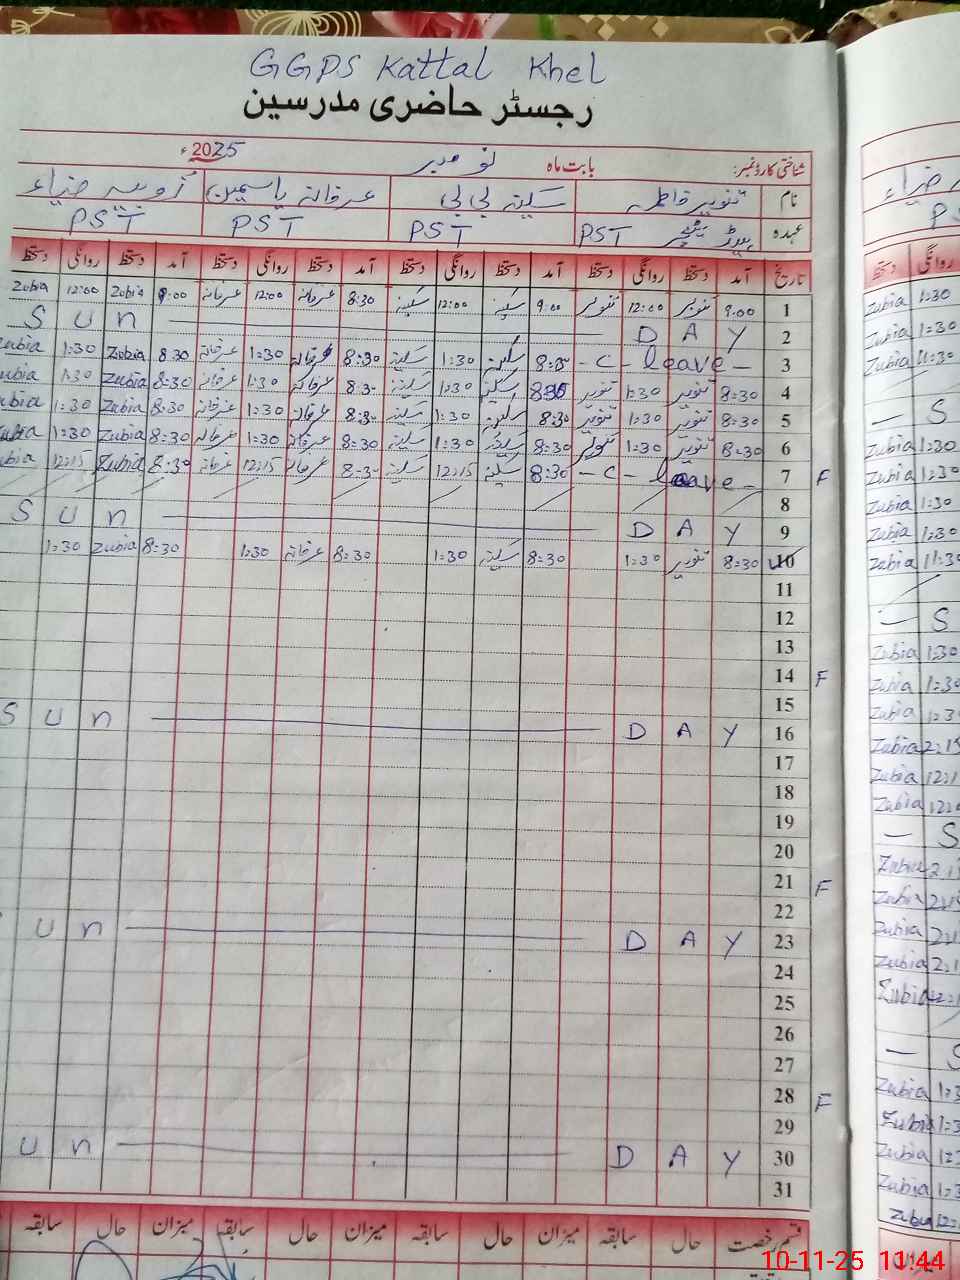 GGPS Kattal Khel
رجسٹر حاضری مدرسین
شناختی کارڈ نمبر: بابت ماہ نومبر 2025ء
نام تنویر فاطمہ سکینہ بی بی عرفانہ یاسمین زوبیہ ضیاء
عہدہ ہیڈ ٹیچر PST PST PST PST
تاریخ آمد دستخط روانگی دستخط آمد دستخط روانگی دستخط آمد دستخط روانگی دستخط آمد دستخط روانگی دستخط
1 9:00 تنویر 12:00 تنویر 9:00 سکینہ 12:00 سکینہ 8:30 عرفانہ 12:00 عرفانہ 9:00 Zubia 12:00 Zubia
2 S U n D A Y
3 - C - leave - 8:30 سکینہ 1:30 سکینہ 8:30 عرفانہ 1:30 عرفانہ 8:30 Zubia 1:30 Zubia
4 8:30 تنویر 1:30 تنویر 8:30 سکینہ 1:30 سکینہ 8:30 عرفانہ 1:30 عرفانہ 8:30 Zubia 1:30 Zubia
5 8:30 تنویر 1:30 تنویر 8:30 سکینہ 1:30 سکینہ 8:30 عرفانہ 1:30 عرفانہ 8:30 Zubia 1:30 Zubia
6 8:30 تنویر 1:30 تنویر 8:30 سکینہ 1:30 سکینہ 8:30 عرفانہ 1:30 عرفانہ 8:30 Zubia 1:30 Zubia
7 F - C - leave - 8:30 سکینہ 12:15 سکینہ 8:30 عرفانہ 12:15 عرفانہ 8:30 Zubia 12:15 Zubia
8
9 S U n D A Y
10 8:30 تنویر 1:30 8:30 سکینہ 1:30 8:30 عرفانہ 1:30 8:30 Zubia 1:30
11
12
13
14 F
15
16 S U n D A Y
17
18
19
20
21 F
22
23 U n D A Y
24
25
26
27
28 F
29
30 U n D A Y
31
قسم رخصت حال سابقہ میزان حال سابقہ میزان حال سابقہ میزان حال سابقہ
روانگی دستخط
Zubia 1:30
Zubia 1:30
Zubia 11:30
— S
Zubia 1:30
Zubia 1:30
Zubia 1:30
Zubia 1:30
Zubia 11:30
— S
Zubia 1:30
Zubia 1:30
Zubia
Zubia 2:15
Zubia
Zubia
— S
Zubia
Zubia
Zubia
Zubia
Zubia
— S
Zubia
Zubia
Zubia
Zubia
Zubia
10-11-25 11:44